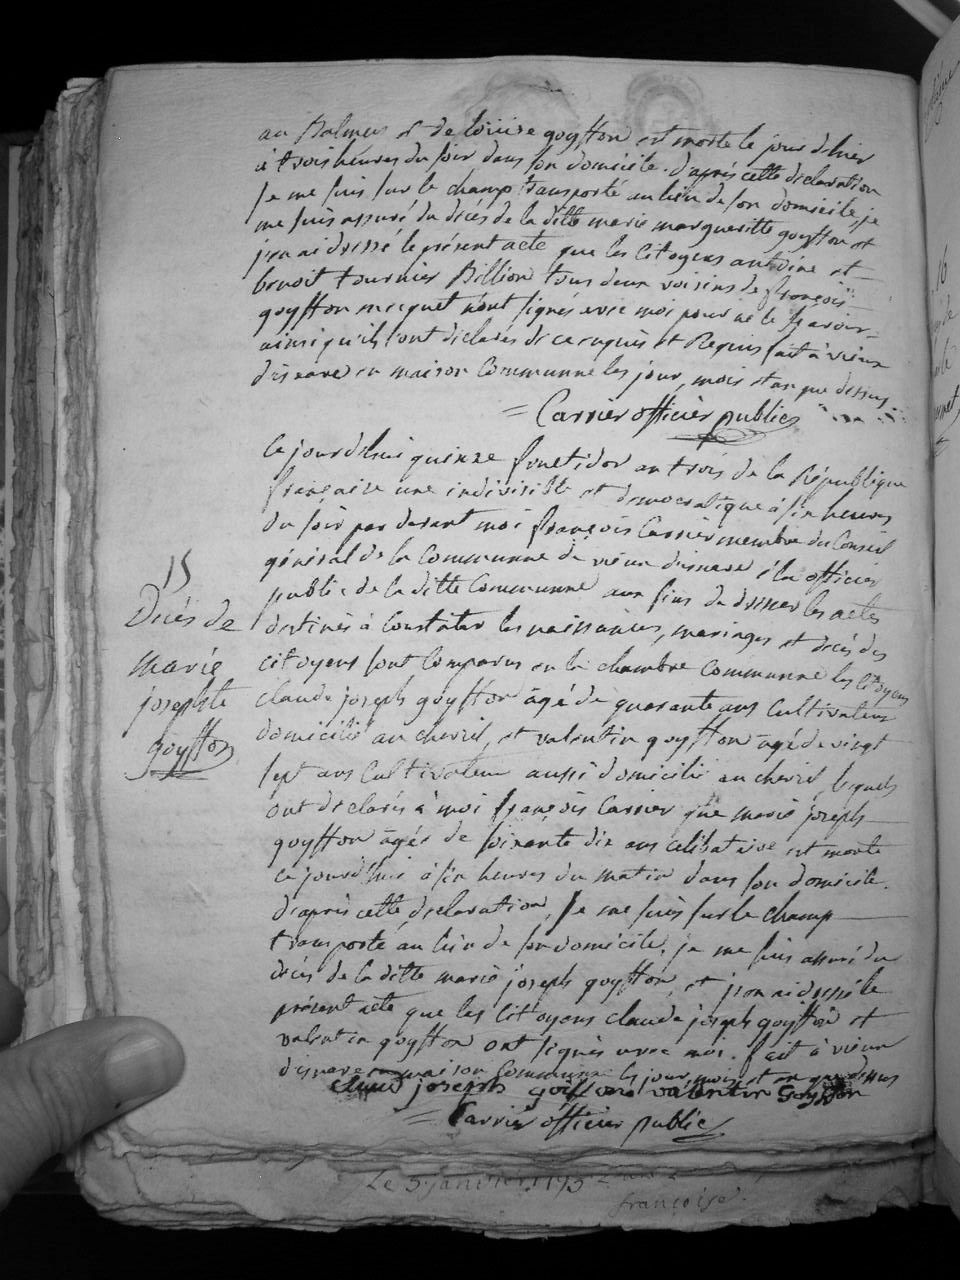 au Balmens et de louise goyffon est morte le jour dhier
à trois heures du soir dans son domicile. d'après cette declaration
je me suis sur le champ transporté au lieu de son domicile, je
me suis assuré du decés de la ditte marie margueritte goyffon et
j'en ai dressé le présent acte que les citoyens antoine et
benoit tournier Billion tous deux voisins de françois
goyffon mequet n'ont signés avec moi pour ne le savoir
ainsi qu'ils ont declarés de ce enquis et Requis fait à vieux
disnave en maison Communne les jour, mois et an que dessus
= Carrier officier public
Ce jourdhui quinze fructidor an trois de la République
française une indivisible et democratique à six heures
du soir par devant moi françois Carrier membre du Conseil
général de la Communne de vieux disnave élu officier
public de la ditte Communne aux fins de dresser les actes
destinés à Constater les naissances, mariages et decés des
citoyens sont Comparus en la chambre Communne les citoyens
claude joseph goyffon âgé de quarante ans Cultivateur
domicilié au chevril, et valentin goyffon âgé de vingt
sept ans Cultivateur aussi domicilié au chevril, lesquels
ont declarés à moi françois Carrier que marie joseph
goyffon âgée de soixante dix ans celibataire est morte
ce jourdhui à six heures du matin dans son domicile.
d'après cette declaration, Je me suis sur le champ
transporté au lieu de son domicile, je me suis assuré du
decés de la ditte marie joseph goyffon, et j'en ai dressé le
présent acte que les citoyens claude joseph goyffon et
valentin goyffon ont signés avec moi. fait à vieux
disnave en maison Communne les jour, mois et an que dessus
claude joseph goiffon valentin Goyffon
= Carrier officier public
15
Decés de
marie
josephte
goyffon
Le 5 janvier
françoise.
16